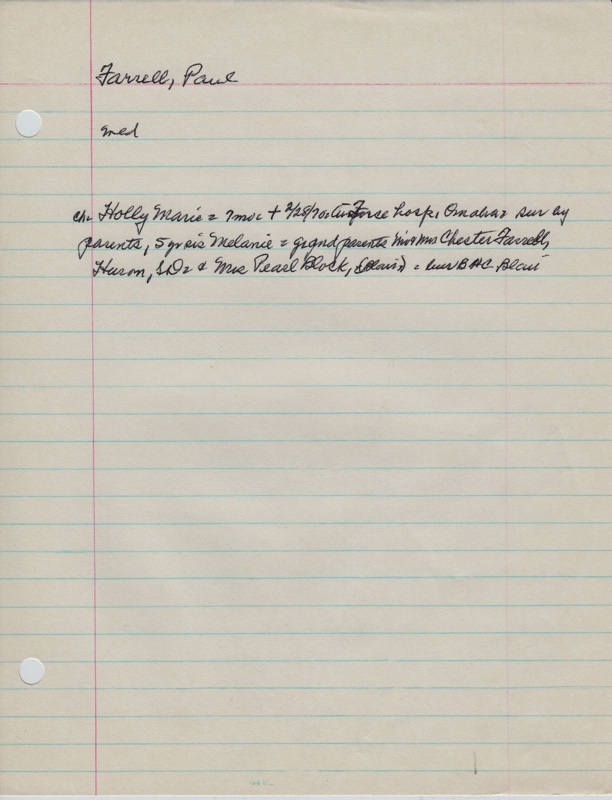 Farrell, Paul
med
ch= Holly Marie = 7 mo = + 2/28/70 Air Force hosp, Omaha = sur by
parents, 5 yr sis Melanie = grand parents Mr & Mrs Chester Farrell,
Huron, S.D. & Mrs Pearl Block, (Blair) = bur B HC Blair